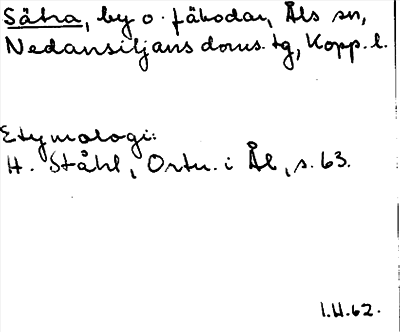 Sätra, by o. fäbodar, Åls sn,
Nedansiljans doms. tg, Kopp. l.
Etymologi:
H. Ståhl, Ortn. i Ål, s. 63.
I.H.62.